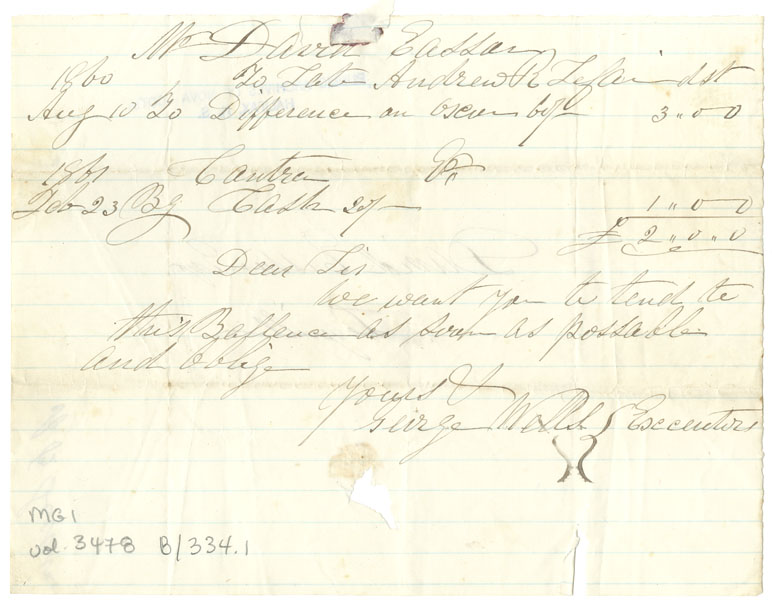 Mr David Eassan
1860 To Late Andrew R Leslai dst
Aug 10 To Difference on oxen 60/- 3 " 0 0
1861 Cautra Cr
Feb 23 By Cash 20/- 1 " 0 0
£ 2 " 0 " 0
Dear Sir
We want you to tend to
this Ballence as soon as possable
and Oblige
Yours &
George Wells Executors
MG1
vol. 3478 B/334.1